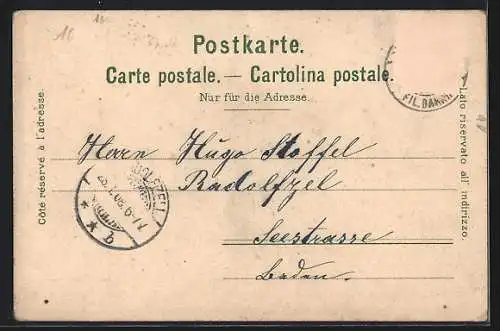 Postkarte.
Carte postale. — Cartolina postale.
Nur für die Adresse.
Côté réservé à l'adresse.
Lato riservato all' indirizzo.
Herrn Hugo Stoffel
Radolfzel
Seestrasse
Baden.